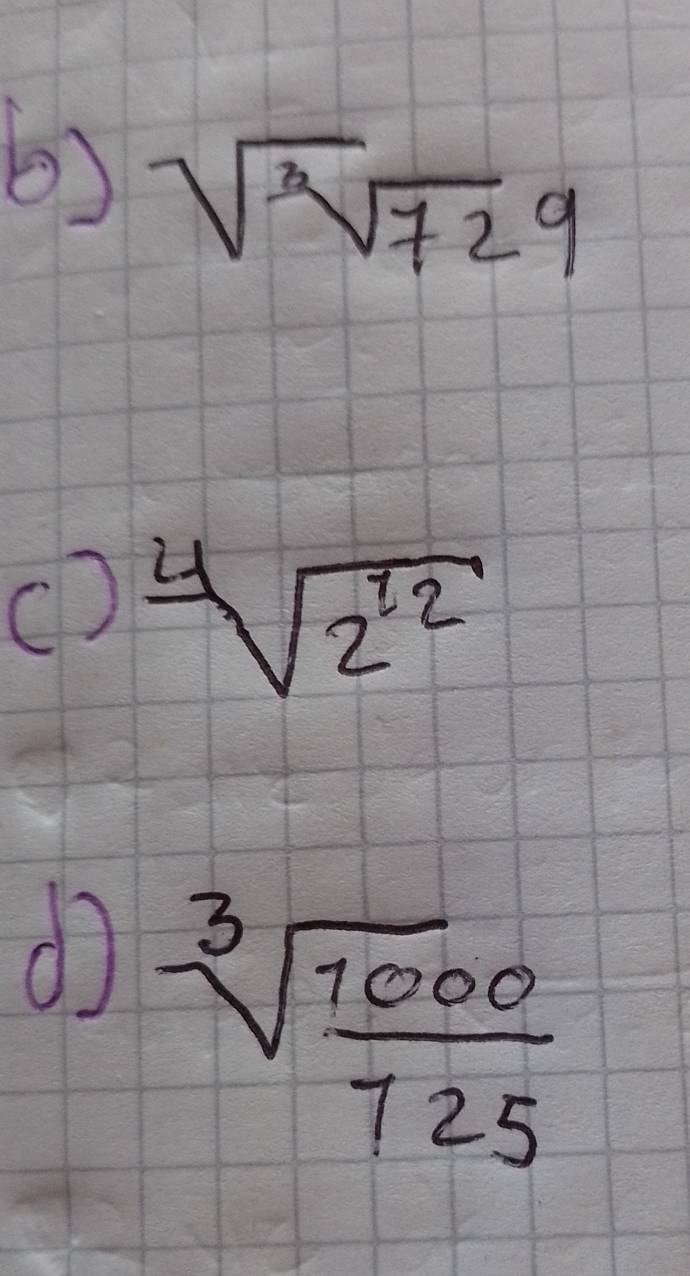 b) √∛729
c) ∜2¹²
d) ∛1000/125